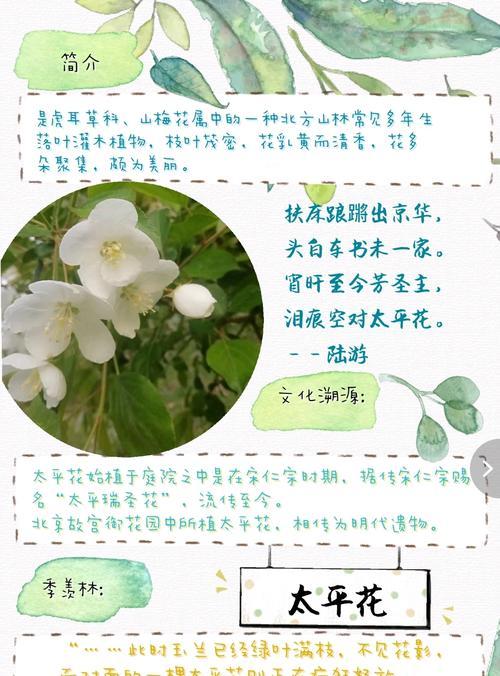 简介
是虎耳草科、山梅花属中的一种北方山林常见多年生
落叶灌木植物，枝叶茂密，花乳黄而清香，花多
朵聚集，颇为美丽。
扶床踉蹡出京华，
头白车书未一家。
宵旰至今劳圣主，
泪痕空对太平花。
--陆游
文化溯源：
太平花始植于庭院之中是在宋仁宗时期，据传宋仁宗赐
名“太平瑞圣花”，流传至今。
北京故宫御花园中所植太平花，相传为明代遗物。
季羡林：
太平花
“……此时玉兰已经绿叶满枝，不见花影，
而对面的一棵太平花则正在疯狂怒放